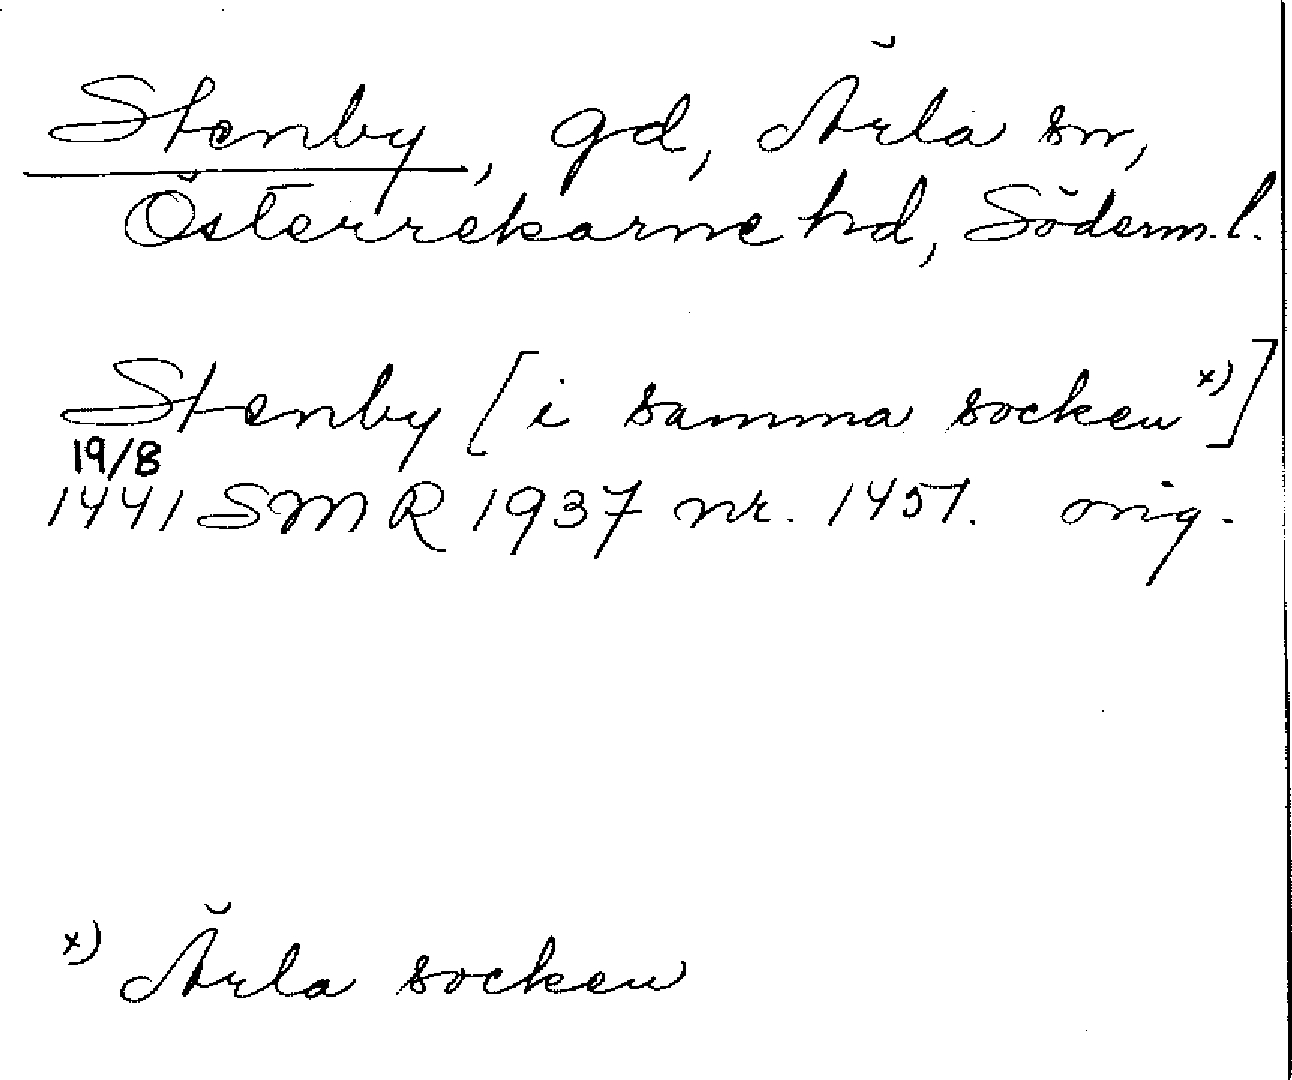 Stenby, gd, Ärla sn,
Österrekarne hd, Söderm. l.
Stenby [i samma socken x)]
19/8
1441 SMR 1937 nr. 1457. orig.
x) Ärla socken